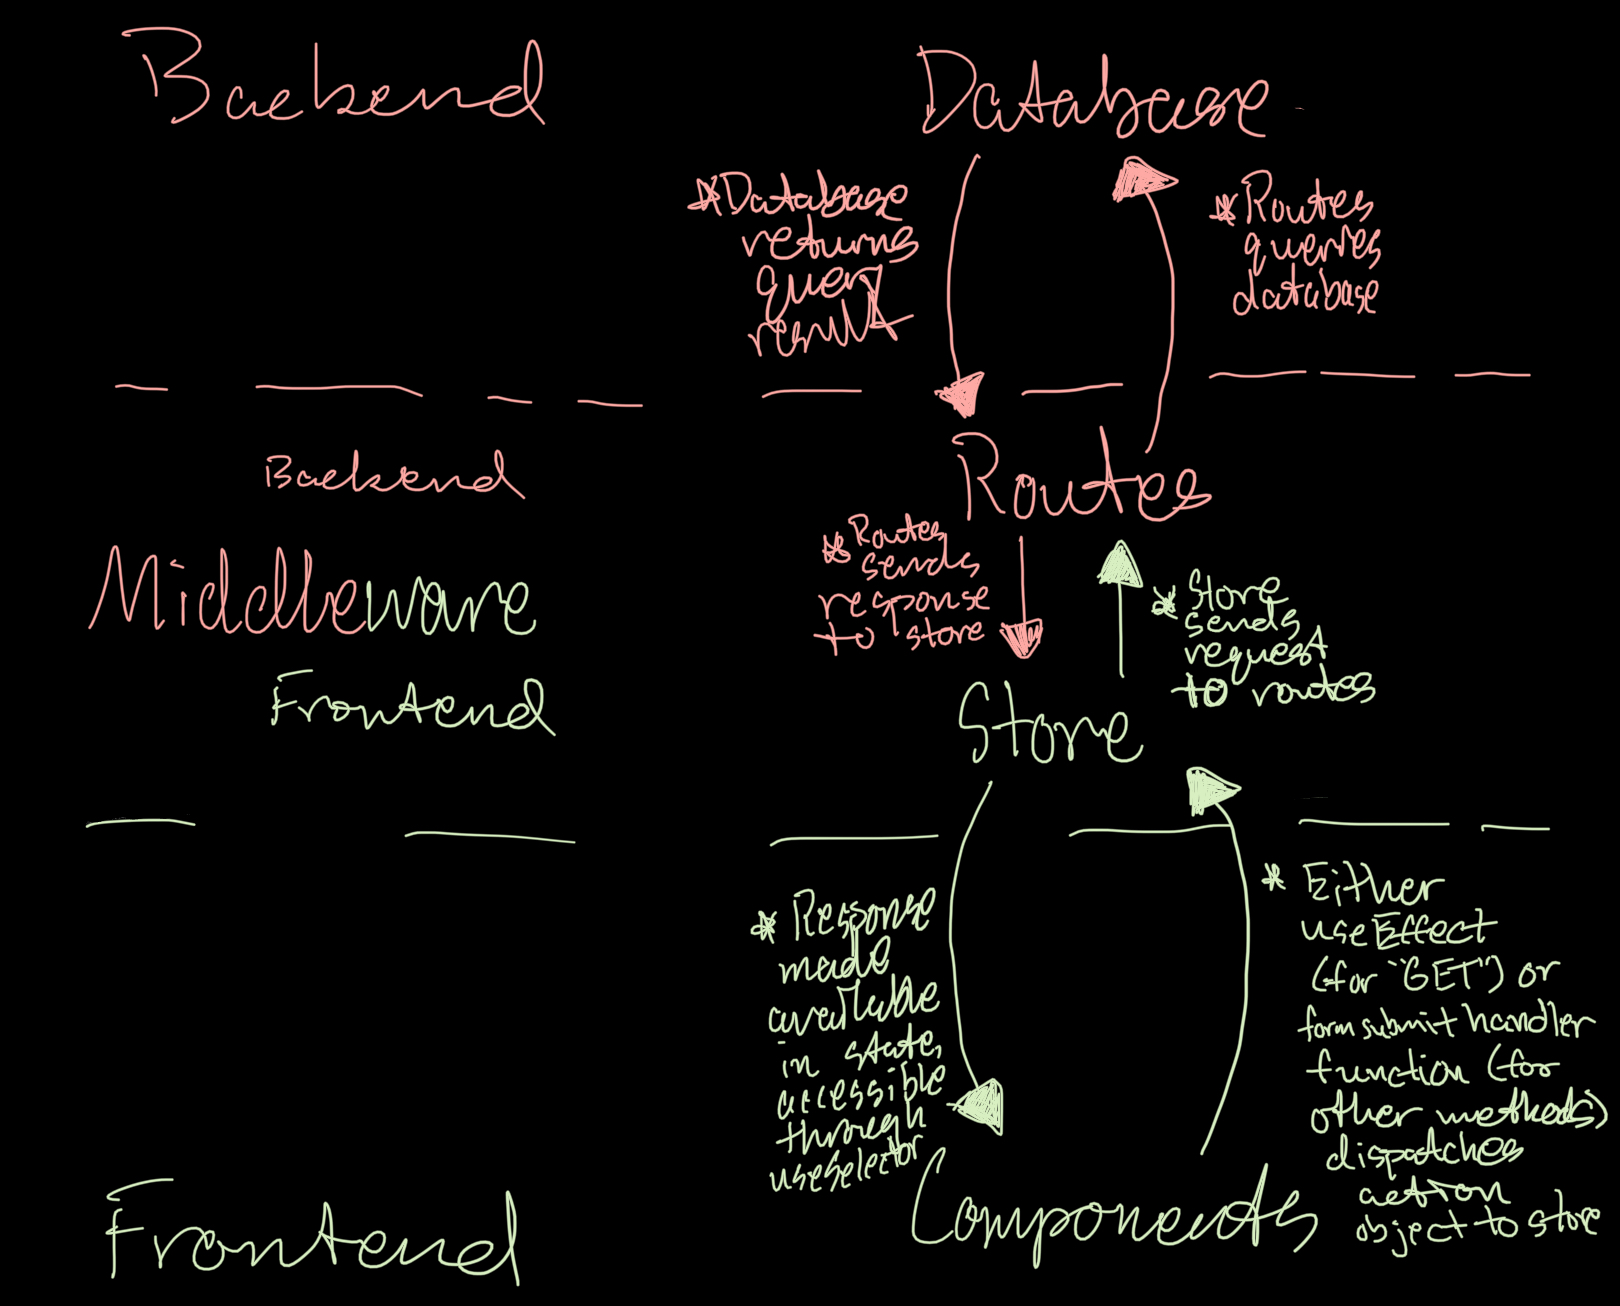 Backend
Database
*Database
returns
query
result
*Routes
queries
database
Backend
Routes
Middleware
*Routes
sends
response
to store
*Store
sends
request
to routes
Frontend
Store
*Response
made
available
in state,
accessible
through
useselector
*Either
useEffect
(for "GET") or
form submit handler
function (for
other methods)
dispatches
action
object to store
Frontend
Components